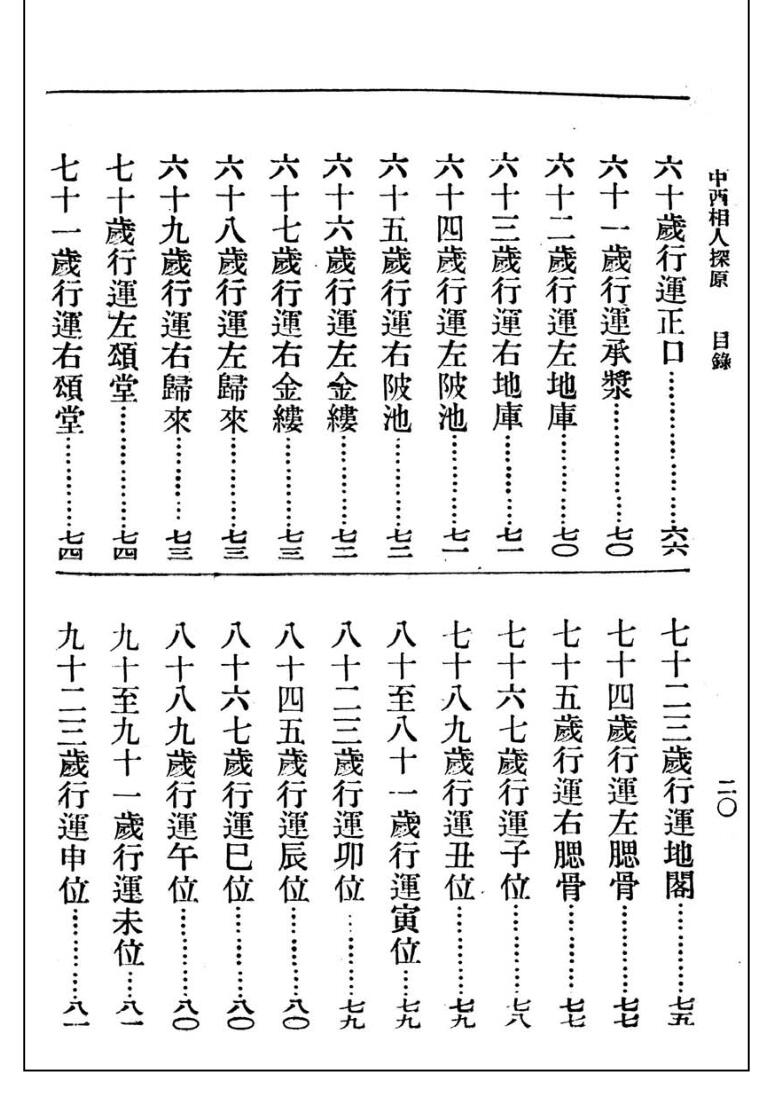 中西相人探原　目錄
二〇
六十歲行運正口……………………六六
六十一歲行運承漿………………七〇
六十二歲行運左地庫……………七〇
六十三歲行運右地庫……………七一
六十四歲行運左陂池……………七一
六十五歲行運右陂池……………七二
六十六歲行運左金縷……………七二
六十七歲行運右金縷……………七三
六十八歲行運左歸來……………七三
六十九歲行運右歸來……………七三
七十歲行運左頌堂………………七四
七十一歲行運右頌堂……………七四
七十二三歲行運地閣……………七五
七十四歲行運左腮骨……………七七
七十五歲行運右腮骨……………七七
七十六七歲行運子位……………七八
七十八九歲行運丑位……………七九
八十至八十一歲行運寅位……七九
八十二三歲行運卯位……………七九
八十四五歲行運辰位……………八〇
八十六七歲行運巳位……………八〇
八十八九歲行運午位……………八〇
九十至九十一歲行運未位……八一
九十二三歲行運申位……………八一